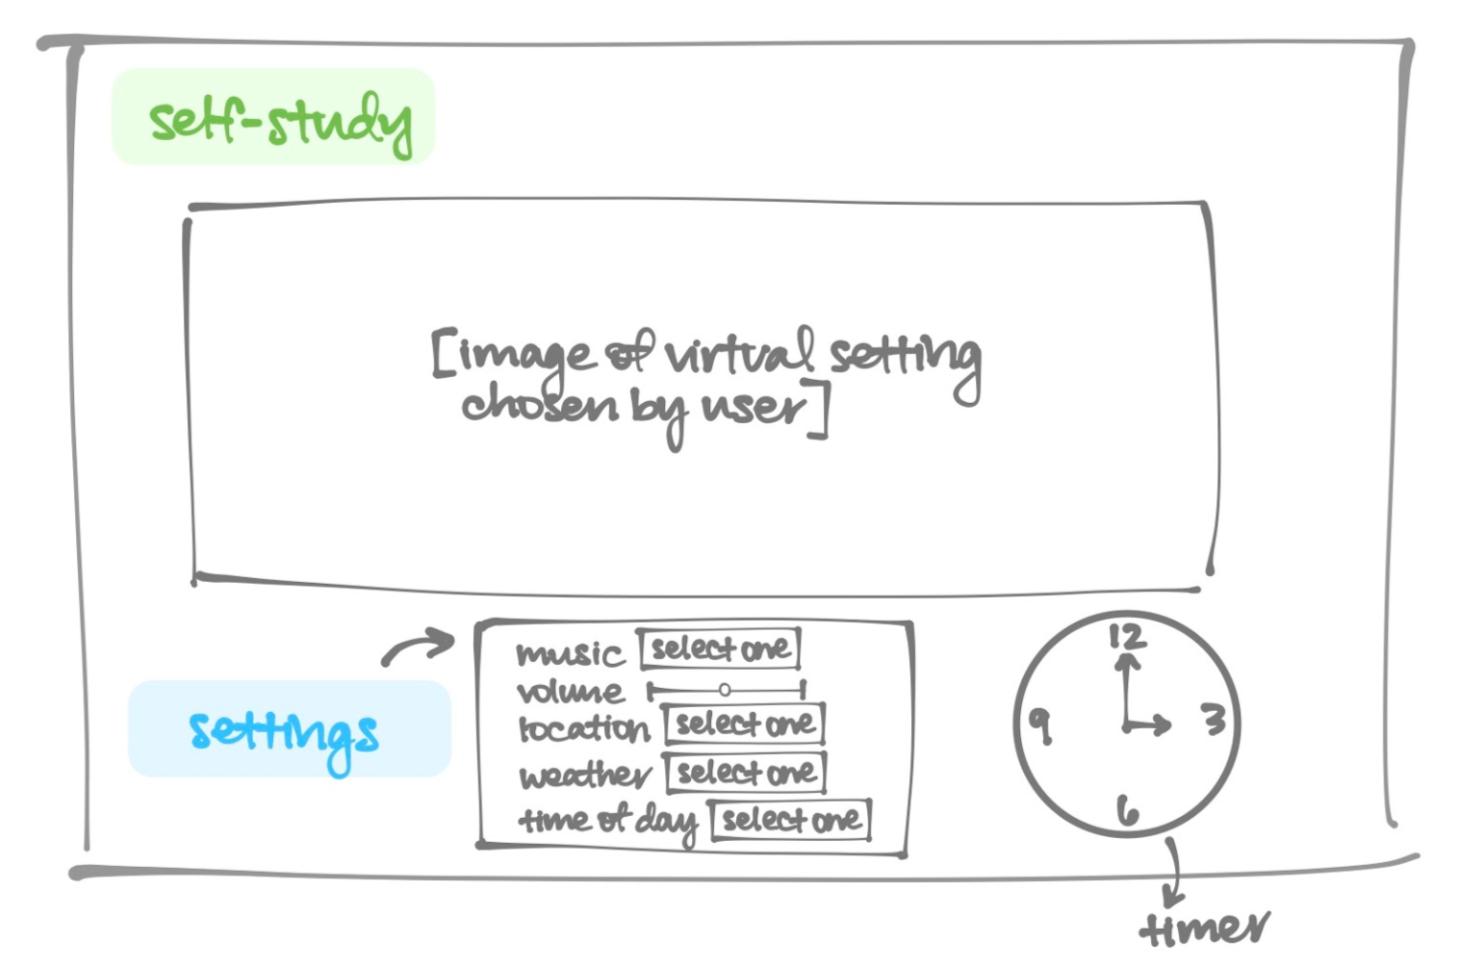 self-study
[image of virtual setting
chosen by user]
settings
music select one
volume
location select one
weather select one
time of day select one
12
9 3
6
timer